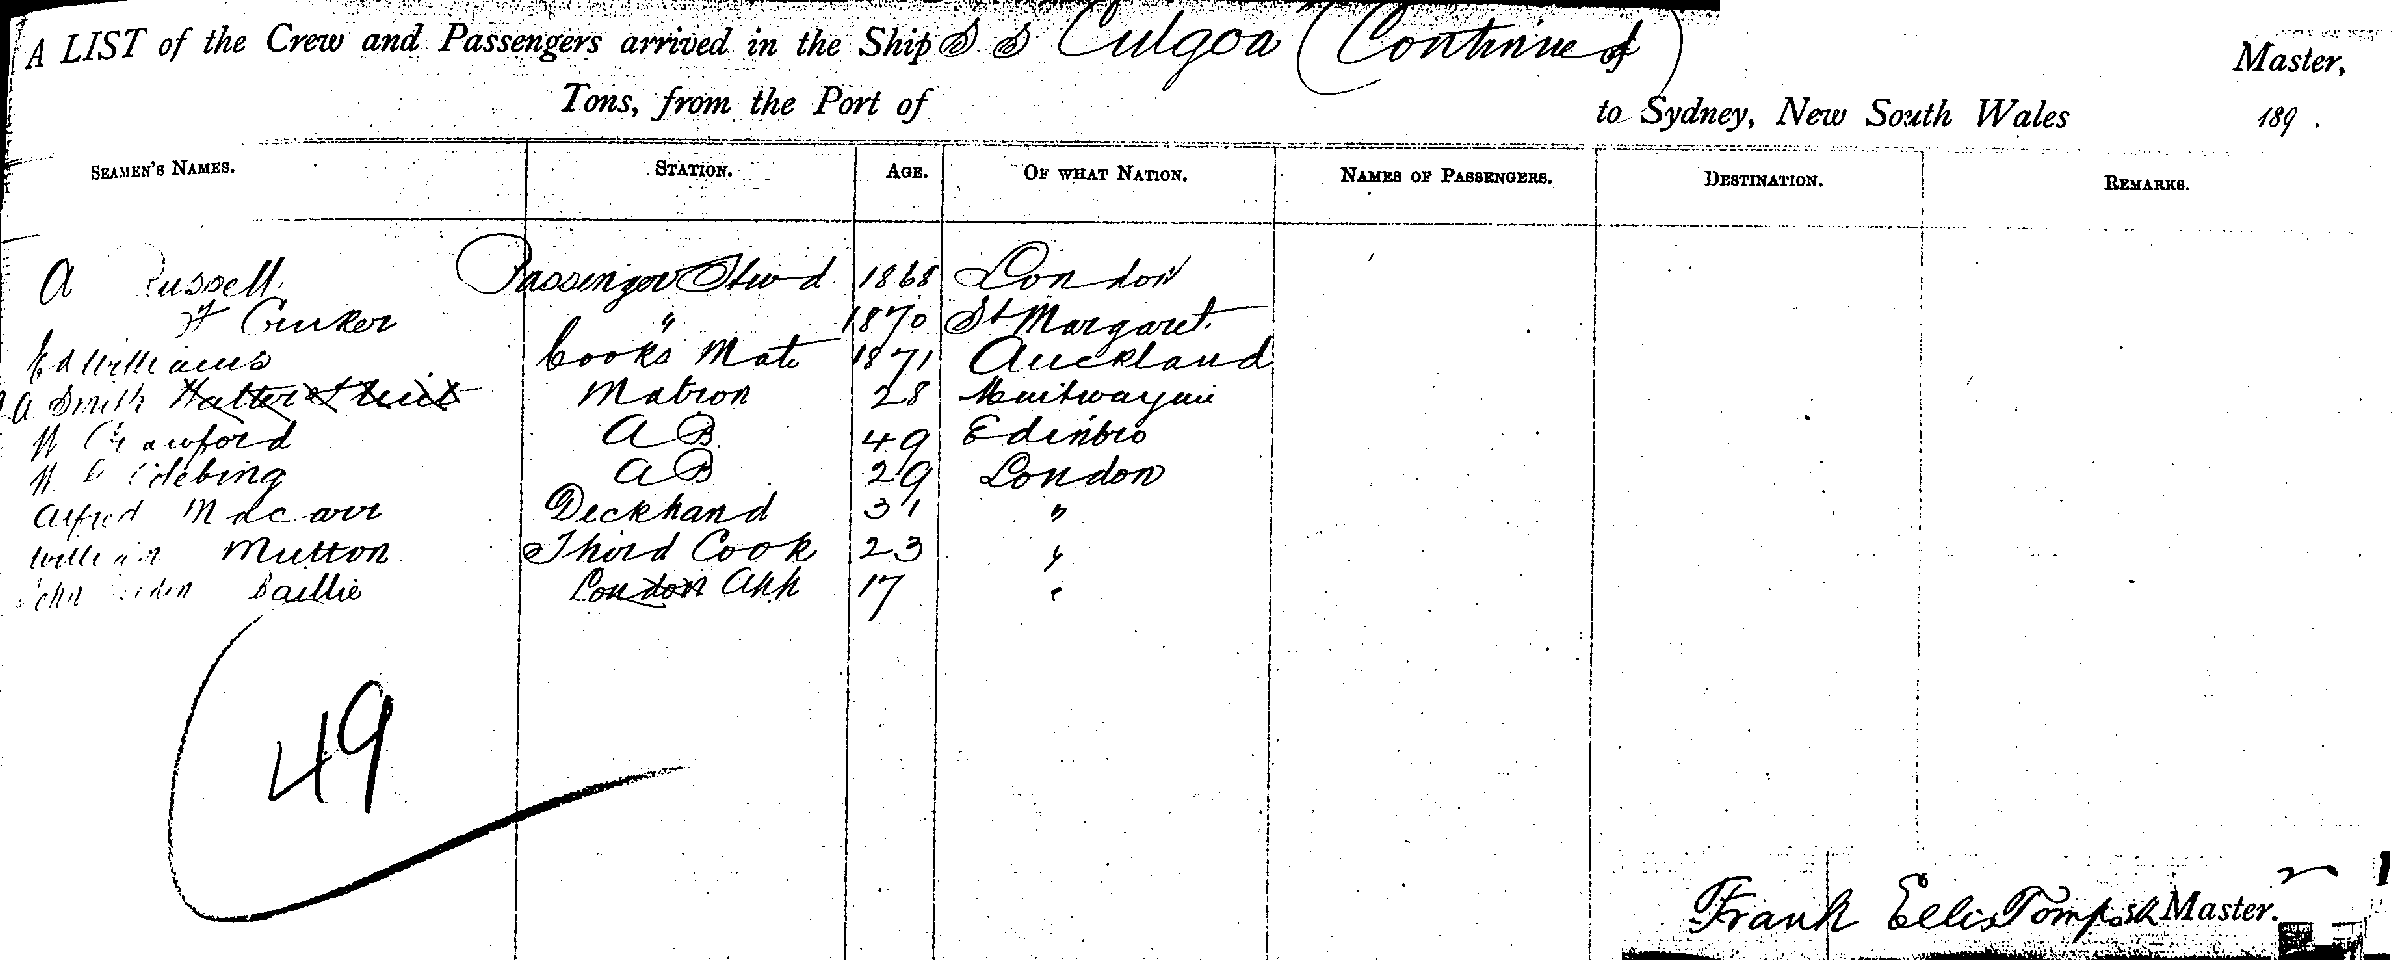 A LIST of the Crew and Passengers arrived in the Ship S S Culgoa (Continued) Master,
Tons, from the Port of to Sydney, New South Wales 189 .
SEAMEN'S NAMES. STATION. AGE. OF WHAT NATION. NAMES OF PASSENGERS. DESTINATION. REMARKS.
A Russell Passenger Stwd 1868 London
" 1870 St Margaret
Ed Williams Cooks Mate 1871 Auckland
A Smith Matron 28
W Crawford AB 49 Edinbro
W AB 29 London
Alfred Deckhand 31 "
William Mutton Third Cook 23 "
John Baillie London App 17 "
49
Frank Ellis Master.